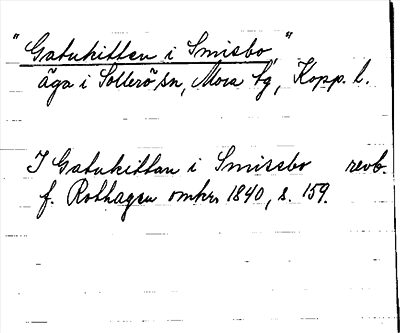 "Gatukitten i Smisbo,"
äga i Sollerö sn, Mora tg, Kopp. l.
I Gatukittan i Smissbo revb.
f. Rothagen omkr 1840, s. 159.